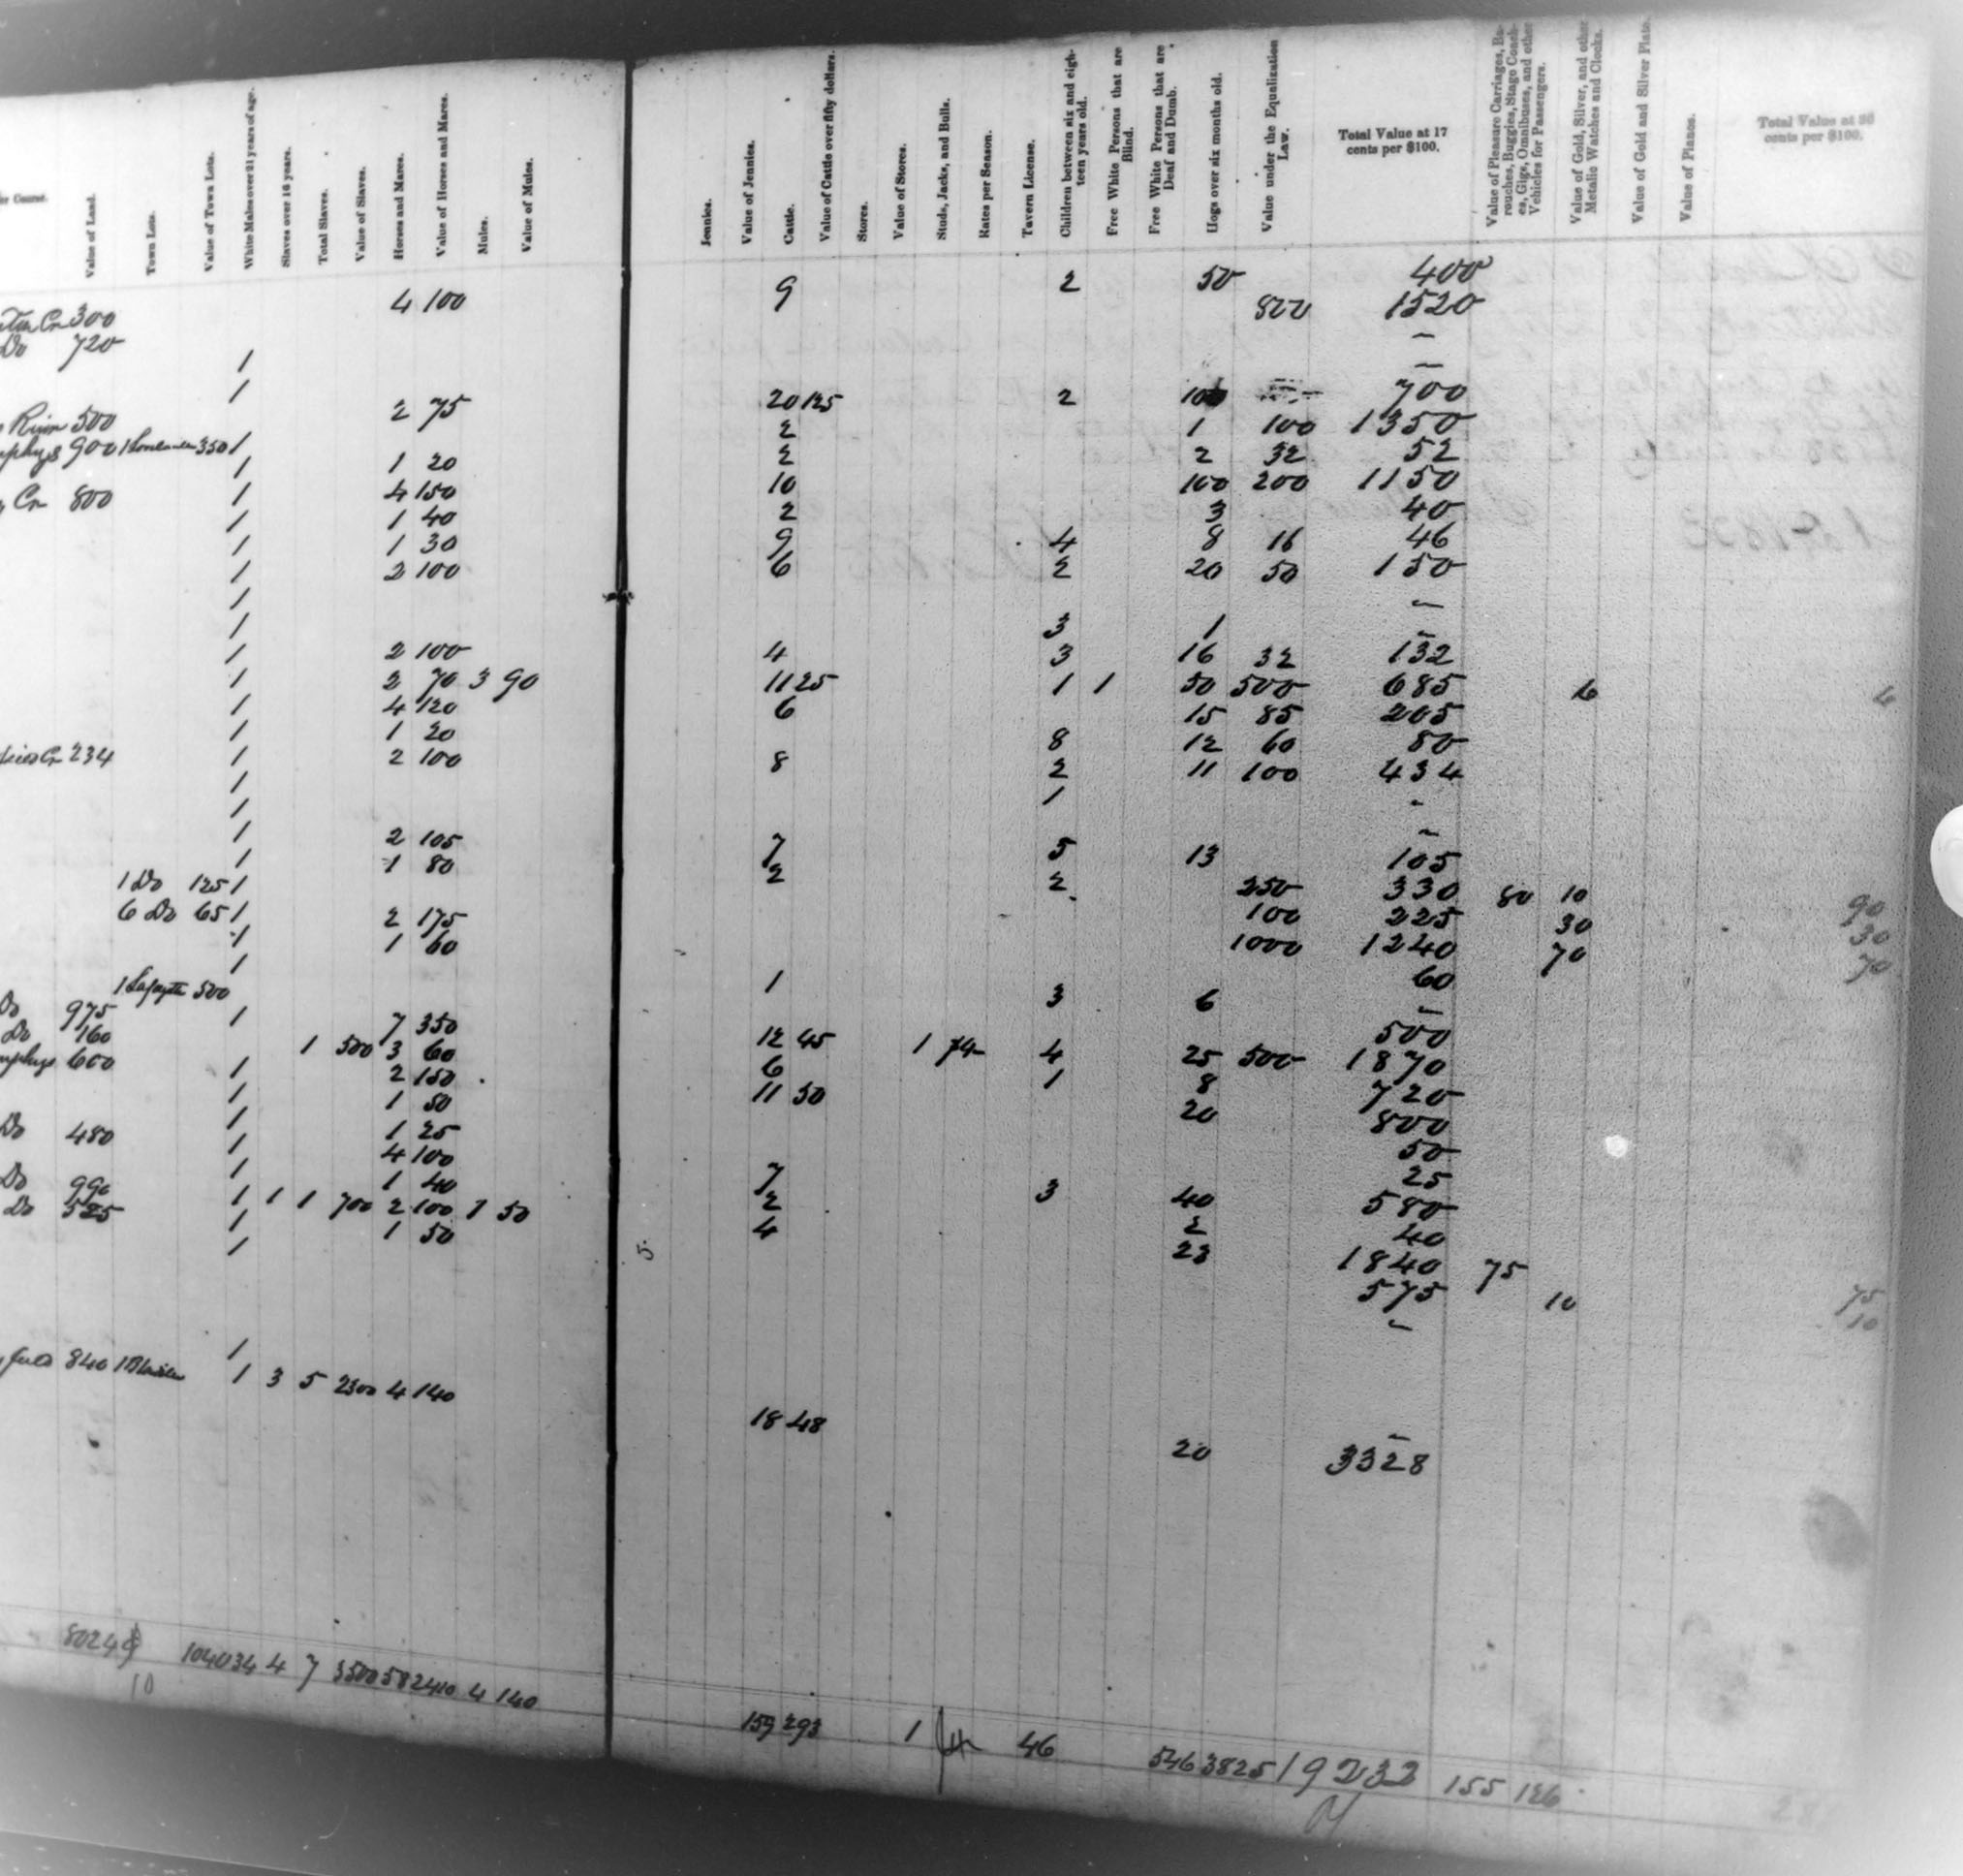 Value of Land. Town Lots. Value of Town Lots. White Males over 21 years of age. Slaves over 16 years. Total Slaves. Value of Slaves. Horses and Mares. Value of Horses and Mares. Mules. Value of Mules. Jennies. Value of Jennies. Cattle. Value of Cattle over fifty dollars. Stores. Value of Stores. Studs, Jacks, and Bulls. Rates per Season. Tavern License. Children between six and eighteen years old. Free White Persons that are Blind. Free White Persons that are Deaf and Dumb. Hogs over six months old. Value under the Equalization Law. Total Value at 17 cents per $100. Value of Pleasure Carriages, Barouches, Buggies, Stage Coaches, Gigs, Omnibuses, and other Vehicles for Passengers. Value of Gold, Silver, and other Metalic Watches and Clocks. Value of Gold and Silver Plate. Value of Pianos. Total Value at 30 cents per $100.
Cr 300 4 100 9 2 50 400
Do 720 800 1520
1 –
1 –
River 500 2 75 20 125 2 100 700
900 1 350 1 2 1 100 1350
1 1 20 2 2 32 52
Cr 800 1 4 150 10 100 200 1150
1 1 40 2 3 40
1 1 30 9 4 8 16 46
1 2 100 6 2 20 50 150
1 –
1 3 1 –
1 2 100 4 3 16 32 132
1 2 70 3 90 11 25 1 1 50 500 685 6 6
1 4 120 6 15 85 205
1 1 20 8 12 60 80
Cr 234 1 2 100 8 2 11 100 434
1 1 -
1 –
1 2 105 7 5 13 105
1 1 80 2 2 250 330 80 10 90
1 Do 125 1 100 225 30 30
6 Do 65 1 2 175 1000 1240 70 70
1 1 60 1 3 6 60
1 –
1 Lafayette 500 500
Do 975 1 7 350 12 45 1 4 25 500 1870
Do 160 1 500 3 60 6 1 8 720
600 1 2 150 11 50 20 800
1 1 50 50
1 1 25 25
Do 480 1 4 100 7 3 40 580
1 1 40 2 2 40
Do 990 1 1 1 700 2 100 1 50 4 23 1840 75 75
Do 525 1 1 50 575 10 10
1 –
1 –
840 1 1 3 5 2300 4 140 18 48 20 3328
8024 1040 34 4 7 3500 58 2410 4 140 159 293 1 46 546 3825 19232 155 126
10